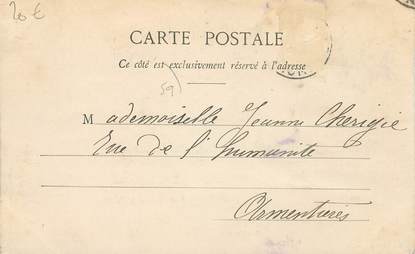 20 €
CARTE POSTALE
Ce côté est exclusivement réservé à l'adresse
59)
Mademoiselle Jeanne
Rue de l'humanité
Armentières